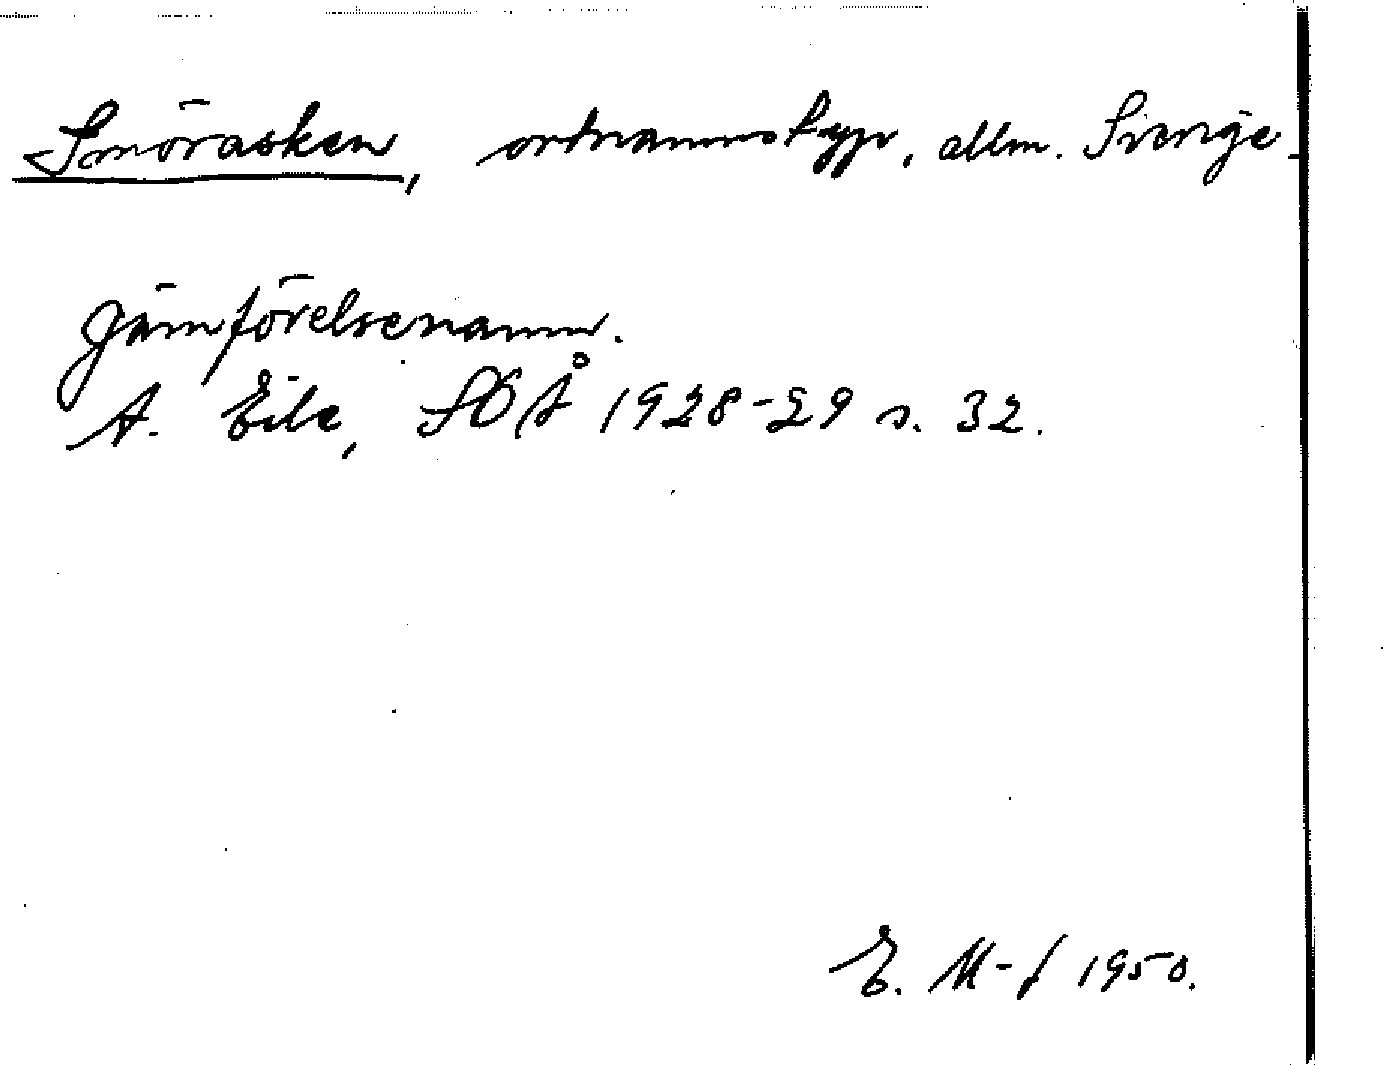 Smörasken, ortnamnstyp, allm. Sverige.
Jämförelsenamn.
A. Eile, SOÅ 1928-29 s. 32.
E. M-f 1950.